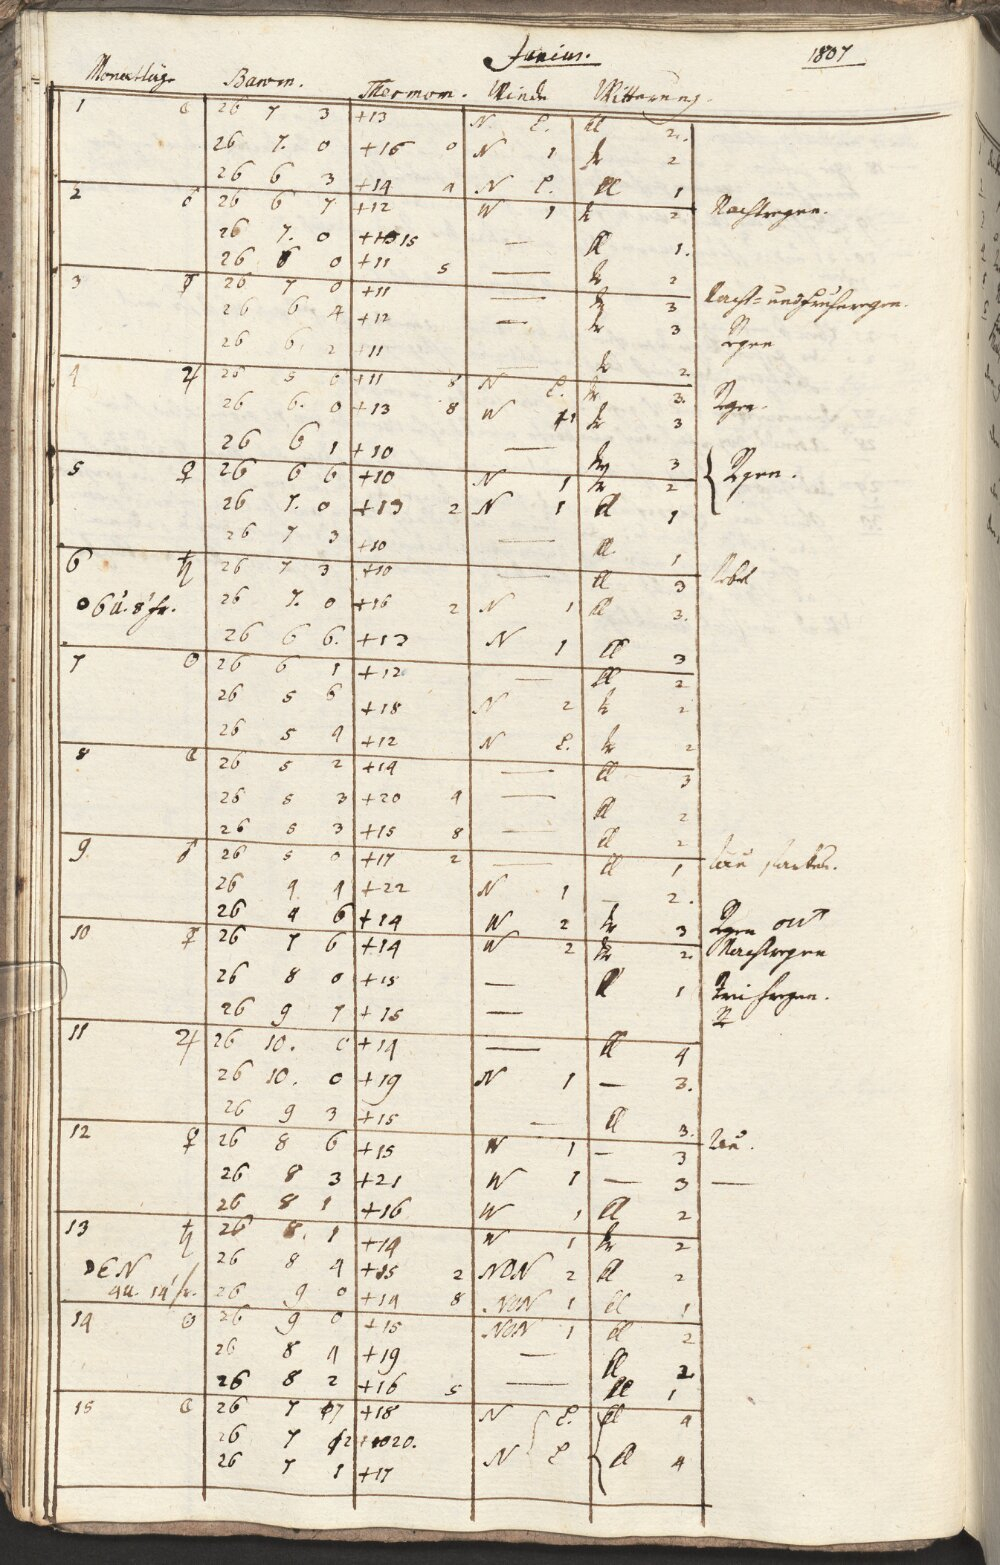 Junius. 1807
Monathtäge Barom. Thermom. Winde Witterung.
1 ☾ 26 7 3 +13 N. L. kl 2.
26 7. 0 +16 0 N 1 tr 2
26 6 3 +14 4 N L. kl 1
2 ♂ 26 6 7 +12 W 1 tr 2 Nachtregen.
26 7. 0 15 — kl 1.
26 6 0 +11 5 — tr 2
3 ☿ 26 7 0 +11 — tr 3 Nacht= und Fruhregen.
26 6 4 +12 — tr 3 Regen
26 6. 2 +11 — tr 2.
4 ♃ 26 5 6 +11 8 N L. tr 3. Regen.
26 6. 0 +13 8 W 1 tr 3
26 6 1 +10 — tr 3
5 ♀ 26 6 6 +10 N 1 tr 2 Regen.
26 7. 0 +13 2 N 1 kl 1
26 7 3 +10 — kl 1
6 ♄ 26 7 3 +10 — kl 3 Nebel
6 u. 8' fr. 26 7. 0 +16 2 N 1 kl 3.
26 6 6. +13 N 1 kl 3
7 ☉ 26 6 1 +12 — kl 2
26 5 6 +18 N 2 tr 2
26 5 4 +12 N L. tr 2
8 ☾ 26 5 2 +14 — kl 3
26 5 3 +20 4 — kl 2
26 5 3 +15 8 — kl 2
9 ♂ 26 5 0 +17 2 — kl 1 Tau starker.
26 4 4 +22 N 1 — 2.
26 4 6 +14 W 2 tr 3 Regen
10 ☿ 26 7 6 +14 W 2 tr 2. Nachtregen
26 8 0 +15 — kl 1
26 9 7 +15 —
11 ♃ 26 10. 0 +14 — kl 4
26 10. 0 +19 N 1 — 3.
26 9 3 +15 — kl 3.
12 ♀ 26 8 6 +15 W 1 — 3 Tau.
26 8 3 +21 W 1 — 3 —
26 8 1 +16 W 1 kl 2
13 ♄ 26 8. 1 +14 W 1 tr 2
☽ E N 26 8 4 +15 2 NON 2 kl 2
4 u. 14' fr. 26 9 0 +14 8 NON 1 kl 1
14 ☉ 26 9 0 +15 NON 1 kl 2
26 8 4 +19 — kl 2
26 8 2 +16 5 — kl 1
15 ☾ 26 7 7 +18 N L. kl 4
26 7 2 20.
26 7 1 +17 N L kl 4